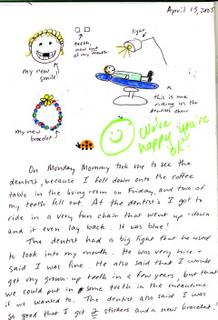 April 13, 2005
light
teeth,
now out
of my mouth
my new
smile!
this is me
riding in the
dentist's chair
my new
bracelet!
We're
happy
you're
OK!!
On Monday Mommy took me to see the
dentist, because I fell down onto the coffee
table in the living room on Friday, and two of
my teeth fell out. At the dentist's I got to
ride in a very fun chair that went up + down
and it even lay back. It was blue!
The dentist had a big light that he used
to look into my mouth. He was very nice +
said I was fine. He also said that I would
get my grown-up teeth in a few years, but that
we could put in some teeth in the meantime
if we wanted to. The dentist also said I was
so good that I got 2 stickers and a new bracelet!